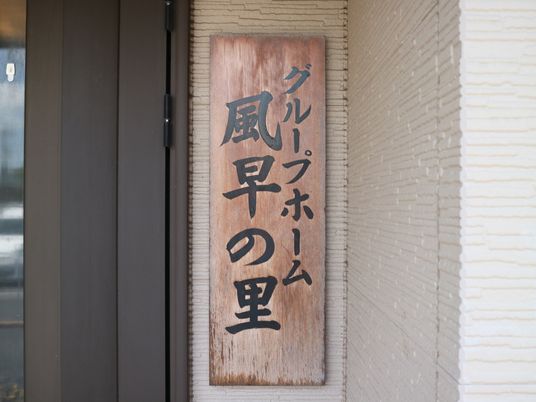 グループホーム
風早の里